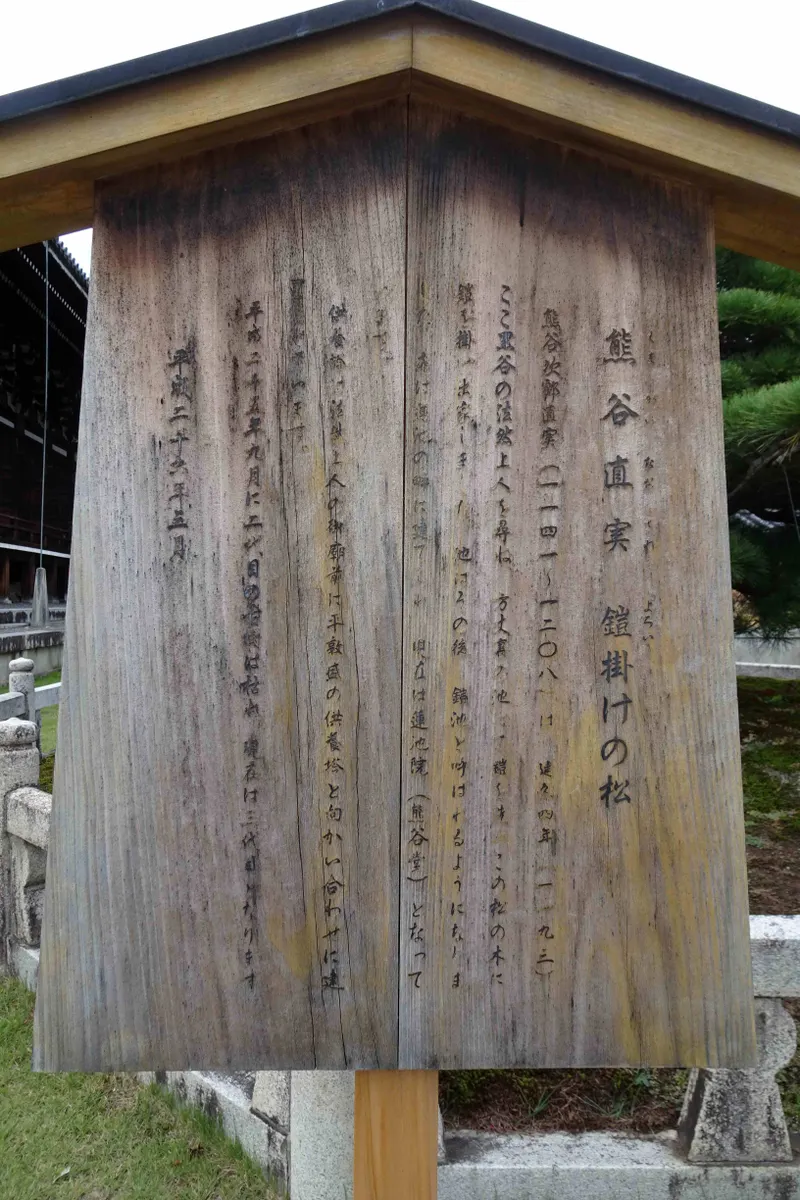 熊谷直実 鎧掛けの松
くまがい なおざね よろい
熊谷次郎直実(一一四一〜一二〇八)は 建久四年(一一九三)
ここ黒谷の法然上人を尋ね 方丈裏の池にて鎧を すぎこの松の木に
鎧を掛け出家しました 池はその後 鎧池と呼ばれるようになりま
した は蓮池の畔に建てられ 現在は蓮池院(熊谷堂)となって
ます。
供養塔は法然上人の御廟前に平敦盛の供養塔と向かい合わせに建
っています。
平成二十五年九月に二代目の は枯れ 現在は三代目となります
平成二十六年五月